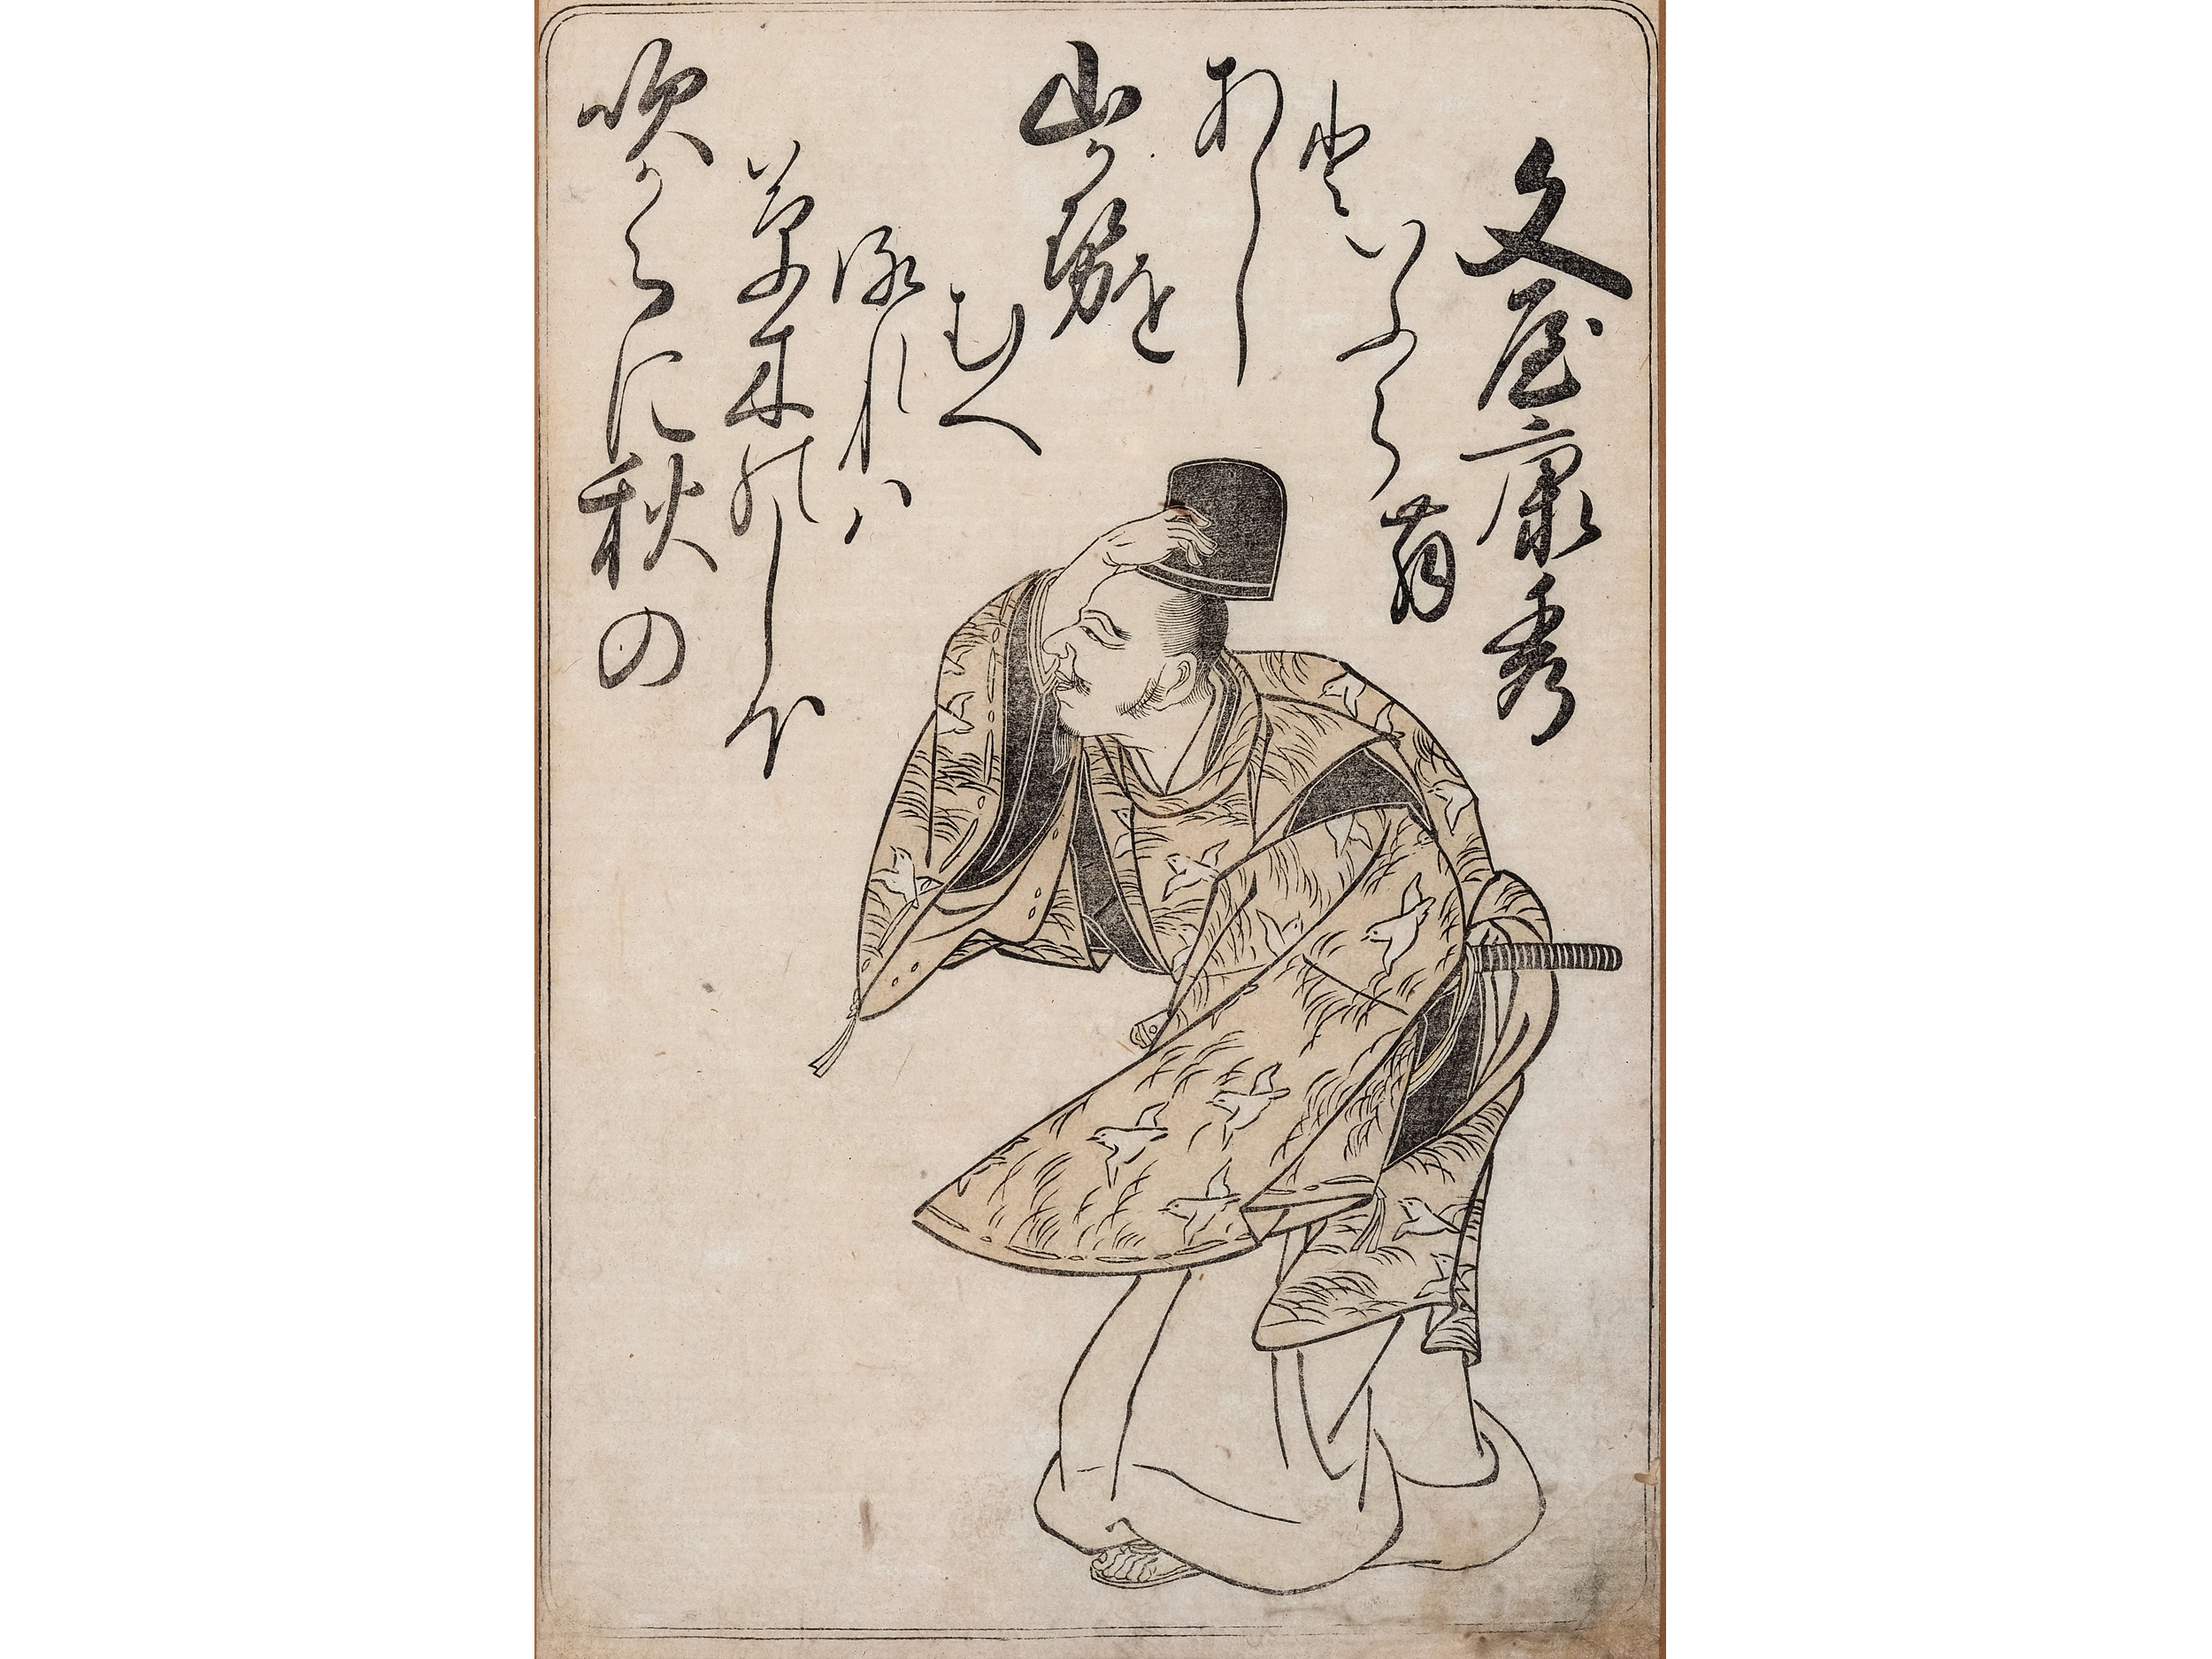 文屋康秀
吹からに秋の
草木のしほ
るれハ
むへ
山かせを
あらし
といふらむ